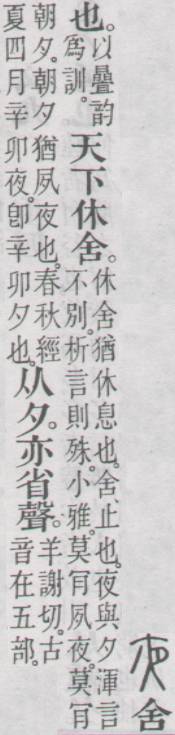 夜 舍
也。以疊韵爲訓。天下休舍。休舍猶休息也。舍、止也。夜與夕渾言不別。析言則殊。小雅。莫肎夙夜。莫肎
朝夕。朝夕猶夙夜也。春秋經夏四月辛卯夜。卽辛卯夕也。从夕。亦省聲。羊謝切。古音在五部。